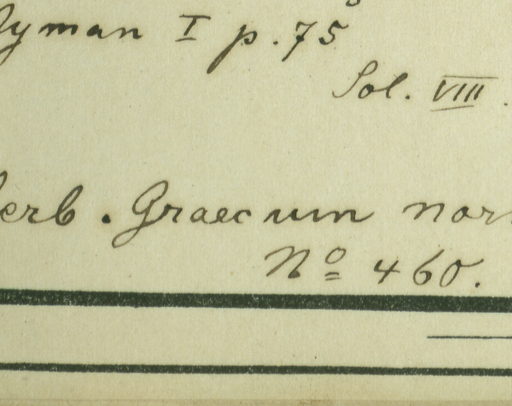 yman I p. 75
Sol. VIII.
erb. Graecum nor
No 460.